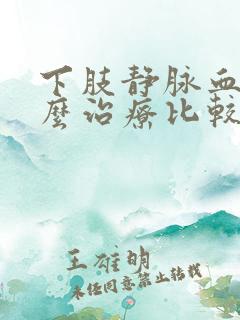 下肢静脉血
麼治療比較
王雄明
未任同意禁止转载